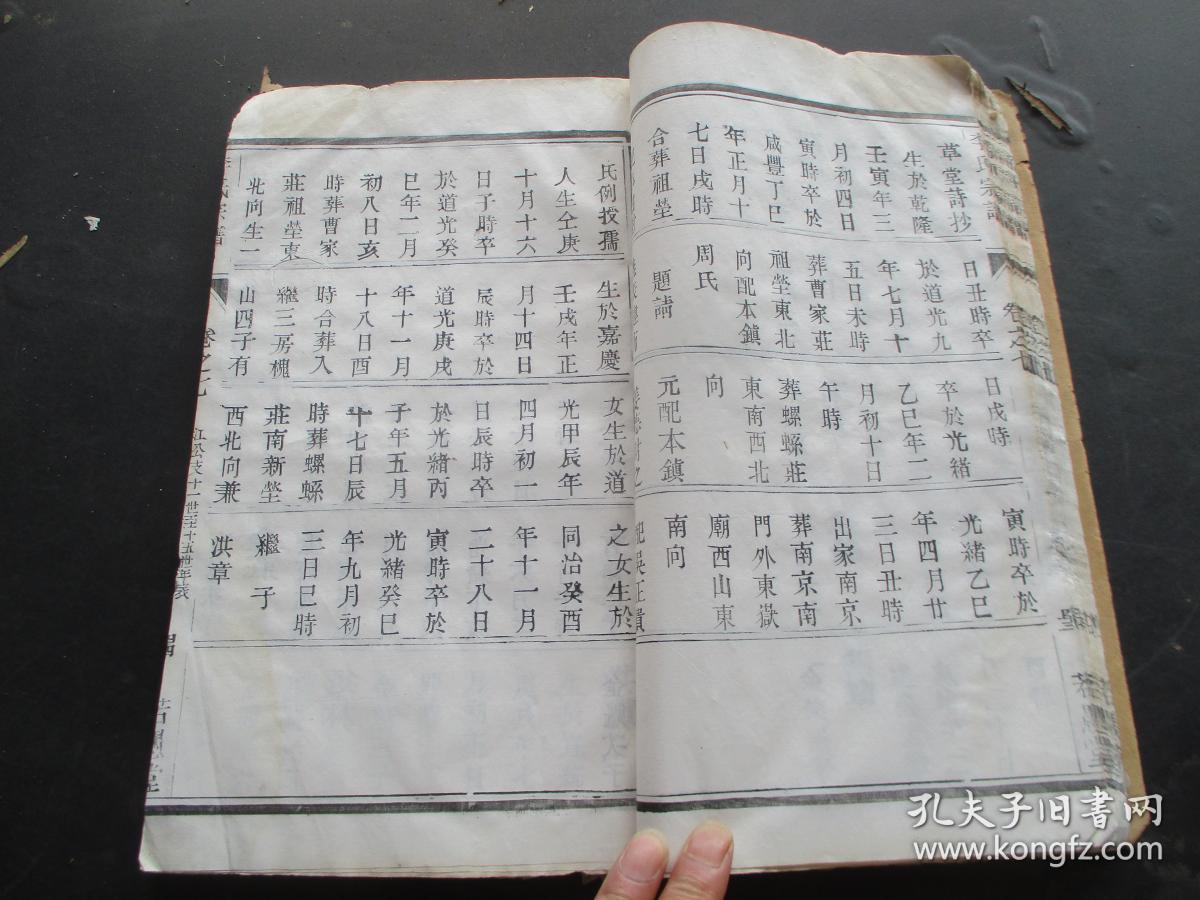 李氏宗譜
卷之七
草堂詩抄
生於乾隆
壬寅年三
月初四日
寅時卒於
咸豐丁巳
年正月十
七日戌時
合葬祖塋
日丑時卒
於道光九
年七月十
五日未時
葬曹家莊
祖塋東北
向配本鎮
周氏
題請
日戌時
卒於光緒
乙巳年二
月初十日
午時
葬螺螄莊
東南西北
向
元配本鎮
寅時卒於
光緒乙巳
年四月廿
三日丑時
出家南京
葬南京南
門外東嶽
廟西山東
南向
氏例授孺
人生仝庚
十月十六
日子時卒
於道光癸
巳年二月
初八日亥
時葬曹家
莊祖塋東
北向生一
生於嘉慶
壬戌年正
月十四日
辰時卒於
道光庚戌
年十一月
十八日酉
時合葬入
繼三房槐
山四子有
女生於道
光甲辰年
四月初一
日辰時卒
於光緒丙
子年五月
十七日辰
時葬螺螄
莊南新塋
西北向兼
之女生於
同治癸酉
年十一月
二十八日
寅時卒於
光緒癸巳
年九月初
三日巳時
繼子
洪章
卷之七
十一世至十五世年表
孔夫子旧书网
www.kongfz.com